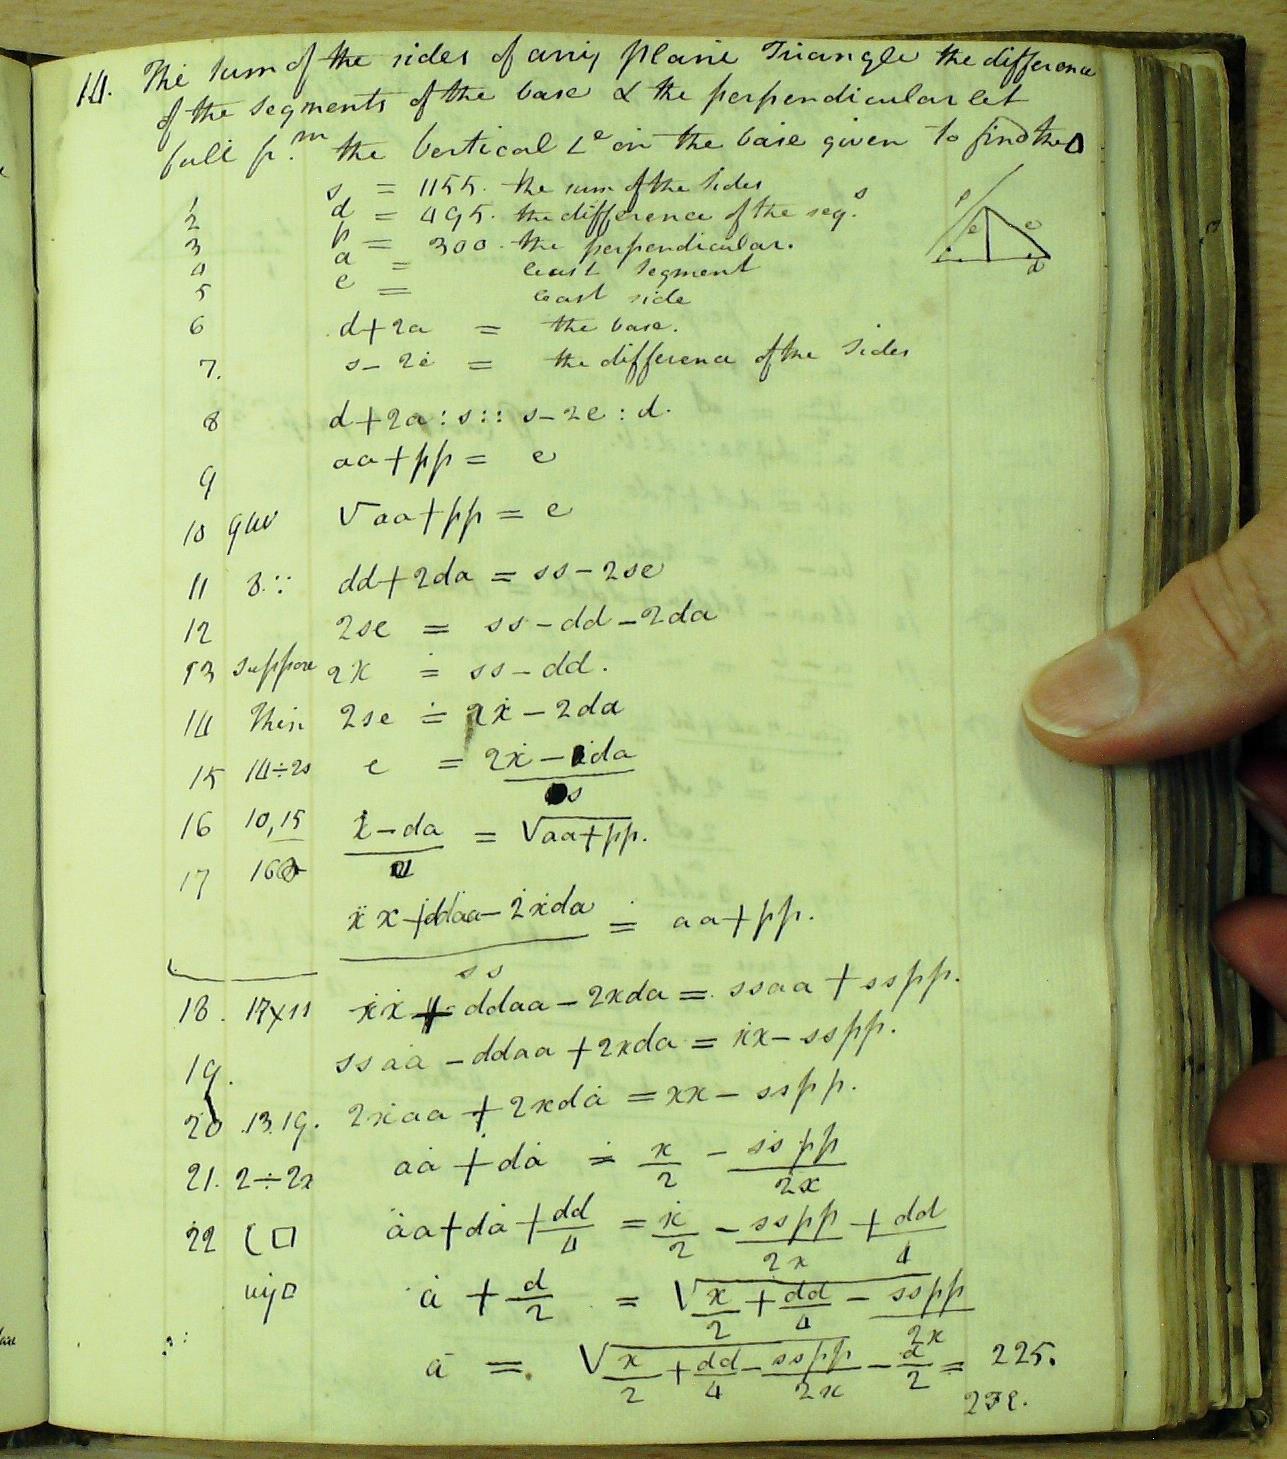 14. The sum of the sides of any plane Triangle the difference
of the segments of the base & the perpendicular let
fall fr.m the Vertical Le on the base given to find the Δ
s = 1155. the sum of the sides
1 d = 495. the difference of the seg.s
2 p = 300. the perpendicular.
3 a = least segment
4 e = least side
5
6 d+2a = the base.
7. s-2e = the difference of the sides
8 d+2a : s :: s-2e : d.
9 aa+pp = e
10 9uv √aa+pp = e
11 8.:: dd+2da = ss-2se
12 2se = ss-dd-2da
13 suppose 2x = ss-dd.
14 Then 2se = 2x-2da
15 14÷2s e = 2x-2da / s
16 10,15 x-da / s = √aa+pp.
17 16 xx+ddaa-2xda / ss = aa+pp.
18. 17×ss xx+ddaa-2xda = ssaa+sspp.
19. ssaa-ddaa+2xda = xx-sspp.
20 13.19. 2xaa+2xda = xx-sspp.
21. 2÷2x aa+da = x/2 - sspp/2x
22 C□ aa+da+dd/4 = x/2 - sspp/2x + dd/4
uy□ a + d/2 = √x/2 + dd/4 - sspp/2x
a = √x/2 + dd/4 - sspp/2x - d/2 = 225.